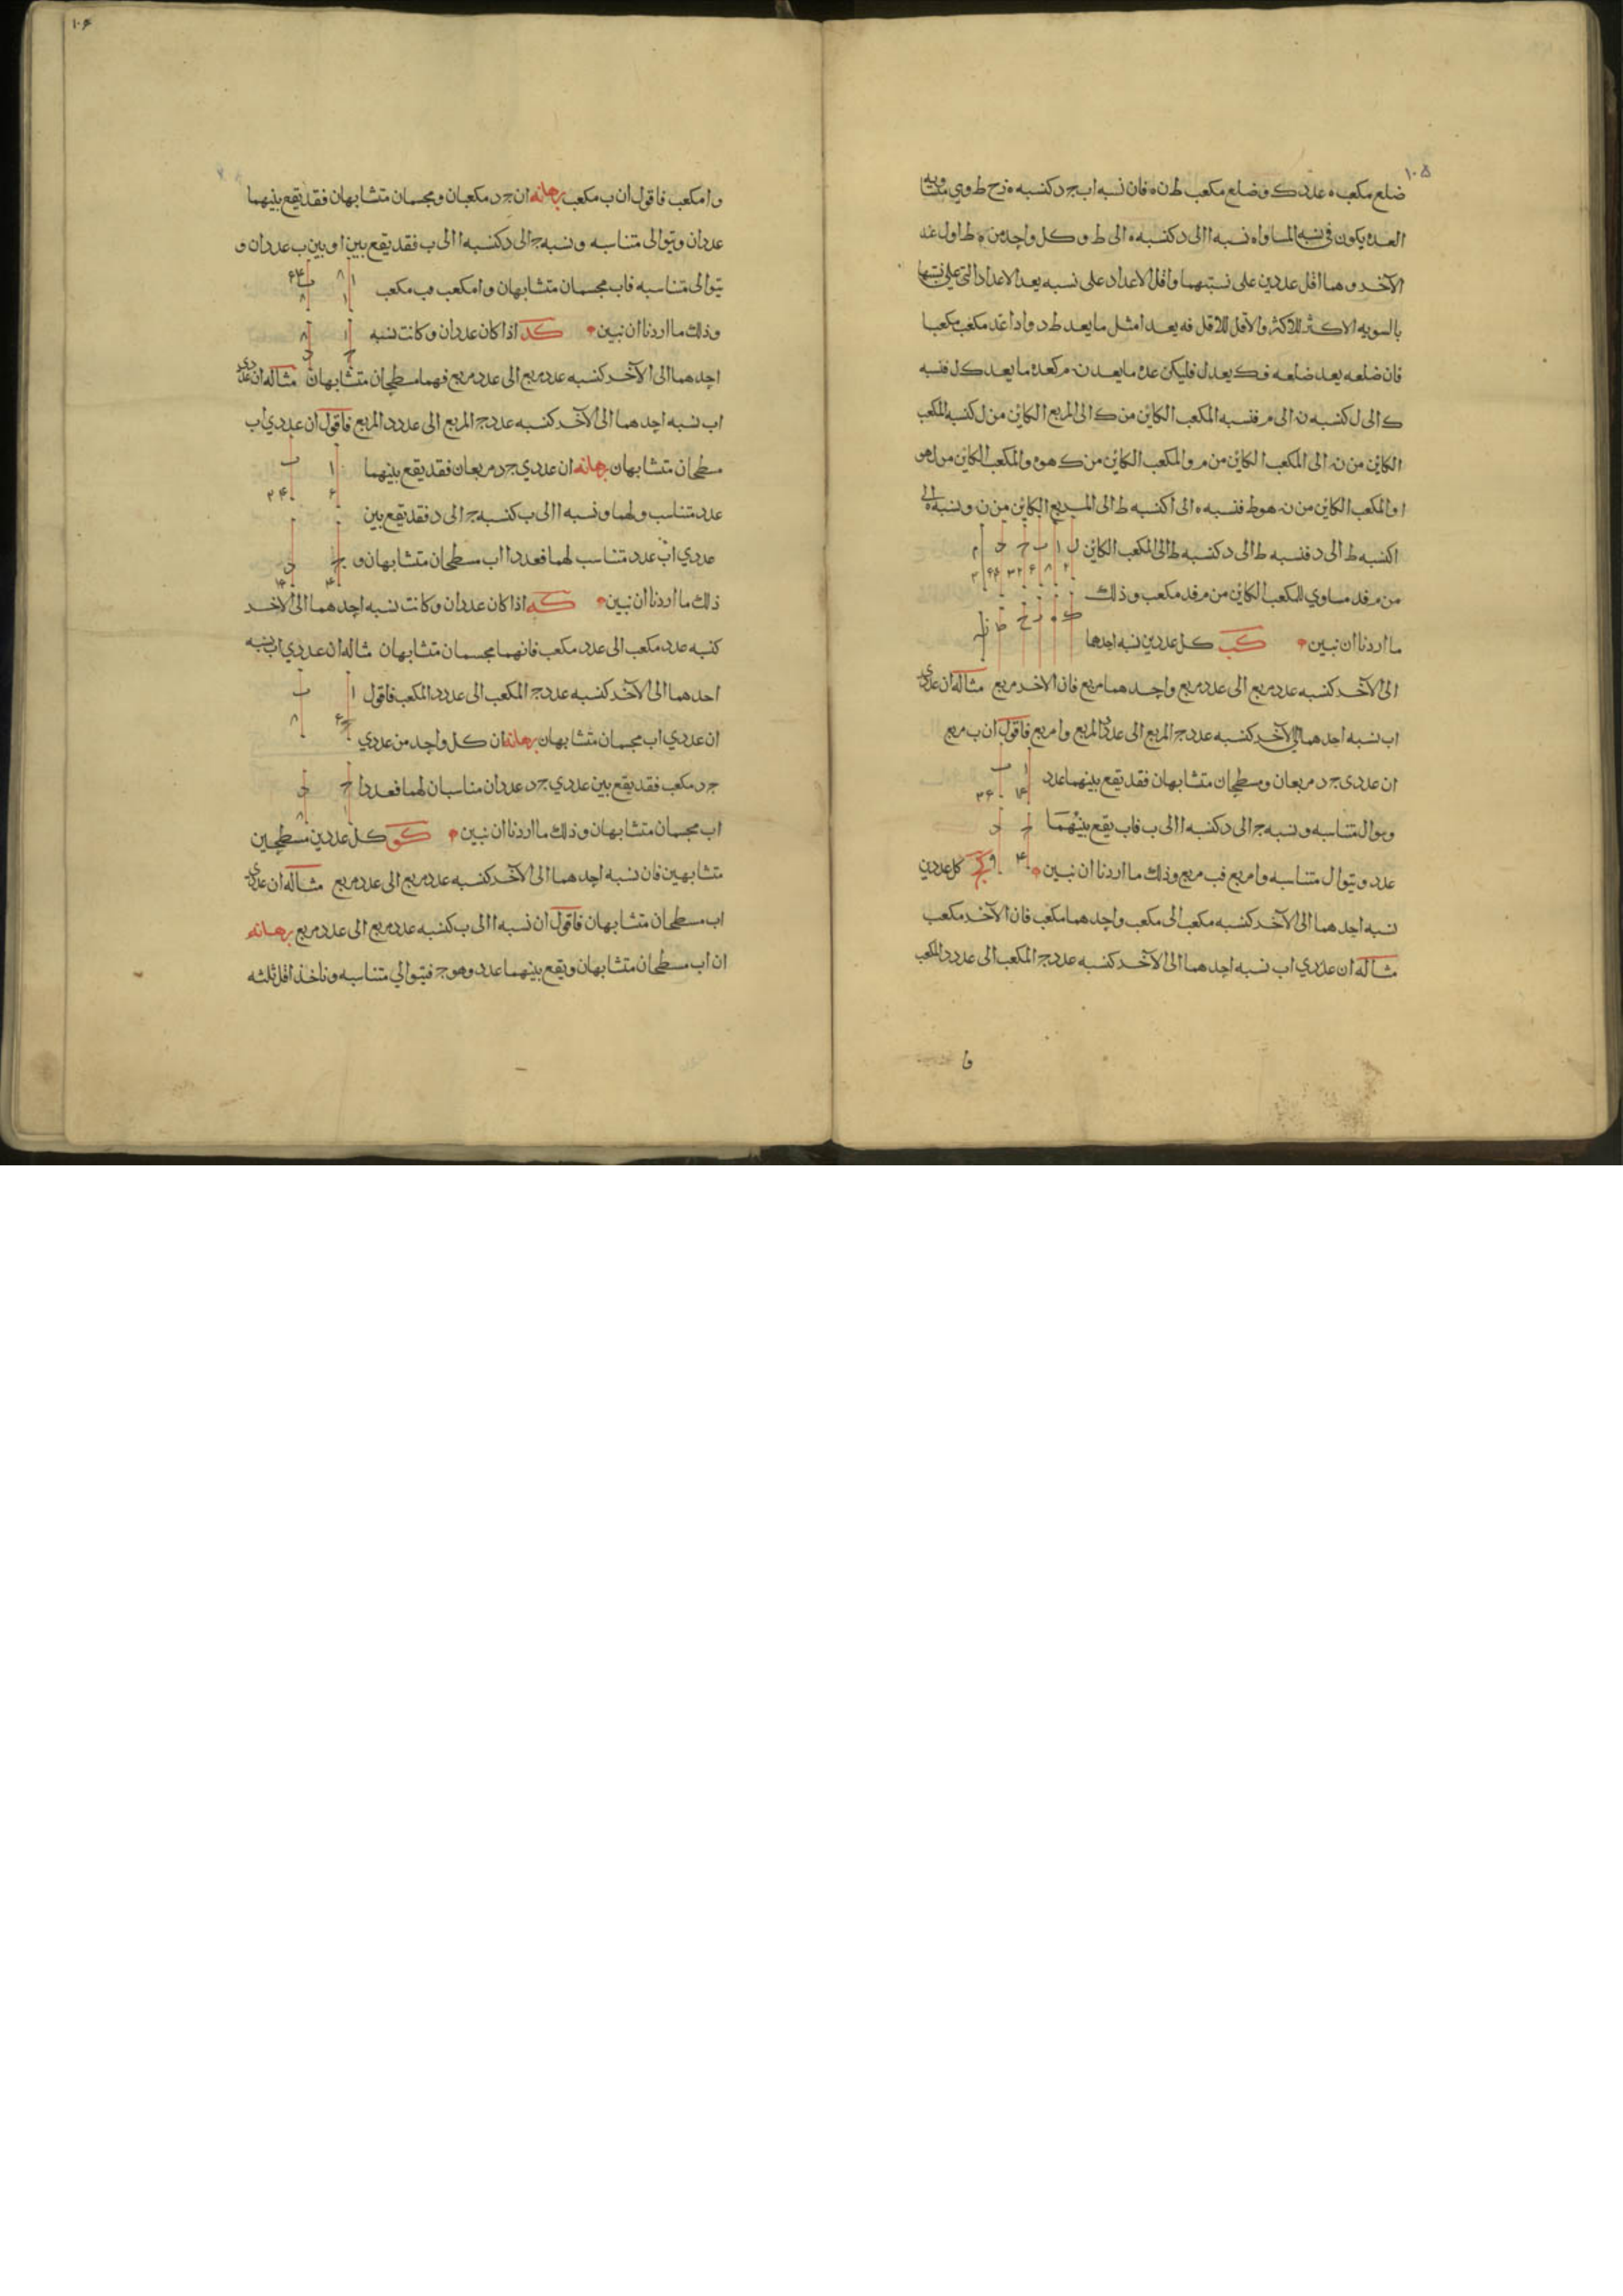 ١٠٥
ضلع مكعب ه عدد ك وضلع مكعب ط ن ه فان نسبه اب ج د كنسبه ه ز ح ط وهي متساويه
العده يكون في نسبه المساواه نسبه ا الى د كنسبه ه الى ط و كل واحد من ه ط اول عند
الآخر وهما اقل عددين على نسبتهما واقل الاعداد على نسبه يعد الاعداد التي على نسبتها
بالسويه الاكثر للاكثر والاقل للاقل فه يعد ا مثل ما يعد ط د واذا عد مكعب مكعبا
فان ضلعه يعد ضلعه فك يعد ل فليكن عده ما يعد ن م كعده ما يعد ك ل فنسبه
ك الى ل كنسبه ن الى م فنسبه المكعب الكاين من ك الى المربع الكاين من ل كنسبه المكعب
الكاين من ن الى المكعب الكاين من م والمكعب الكاين من ك هو ه والمكعب الكاين من ل هو
ا والمكعب الكاين من ن هو ط فنسبه ه الى ا كنسبه ط الى المربع الكاين من ن ونسبه ه الى
ا كنسبه ط الى د فنسبه ط الى د كنسبه ط الى المكعب الكاين
من م فد مساوي للمكعب الكاين من م فد مكعب وذلك
ما اردنا ان نبين كب كل عددين نسبه احدهما
الى الآخر كنسبه عدد مربع الى عدد مربع واحدهما مربع فان الاخر مربع مثاله ان عددي
اب نسبه احدهما الى الآخر كنسبه عدد ج المربع الى عدد د المربع وا مربع فاقول ان ب مربع
ان عددى ج د مربعان ومسطحان متشابهان فقد يقع بينهما عدد
ويوال متناسبه ونسبه ج الى د كنسبه ا الى ب فاب يقع بينهما
عدد ويتوال متناسبه وا مربع فب مربع وذلك ما اردنا ان نبين كج كل عددين
نسبه احدهما الى الآخر كنسبه مكعب الى مكعب واحدهما مكعب فان الآخر مكعب
مثاله ان عددي اب نسبه احدهما الى الآخر كنسبه عدد ج المكعب الى عدد د المكعب
وا
١٠۶
وا مكعب فاقول ان ب مكعب برهانه ان ج د مكعبان ومجسمان متشابهان فقد يقع بينهما
عددان ويتوالى متناسبه ونسبه ج الى د كنسبه ا الى ب فقد يقع بين ا وبين ب عددان و
يتوالى متناسبه فاب مجسمان متشابهان وا مكعب فب مكعب
وذلك ما اردنا ان نبين كد اذا كان عددان وكانت نسبه
احدهما الى الآخر كنسبه عدد مربع الى عدد مربع فهما مسطحان متشابهان مثاله ان عددي
اب نسبه احدهما الى الآخر كنسبه عدد ج المربع الى عدد د المربع فاقول ان عددي اب
مسطحان متشابهان برهانه ان عددي ج د مربعان فقد يقع بينهما
عدد متناسب ولهما ونسبه ا الى ب كنسبه ج الى د فقد يقع بين
عددي اب عدد متناسب لهما فعددا اب مسطحان متشابهان و
ذلك ما اردنا ان نبين كه اذا كان عددان وكانت نسبه احدهما الى الاخر
كنسبه عدد مكعب الى عدد مكعب فانهما مجسمان متشابهان مثاله ان عددي اب نسبه
احدهما الى الآخر كنسبه عدد ج المكعب الى عدد د المكعب فاقول
ان عددي اب مجسمان متشابهان برهانه ان كل واحد من عددي
ج د مكعب فقد يقع بين عددي ج د عددان مناسبان لهما فعددا
اب مجسمان متشابهان وذلك ما اردنا ان نبين كو كل عددين مسطحين
متشابهين فان نسبه احدهما الى الآخر كنسبه عدد مربع الى عدد مربع مثاله ان عددي
اب مسطحان متشابهان فاقول ان نسبه ا الى ب كنسبه عدد مربع الى عدد مربع برهانه
ان اب مسطحان متشابهان ويقع بينهما عدد وهو ج فيتوالي متناسبه وناخذ اقل ثلثه